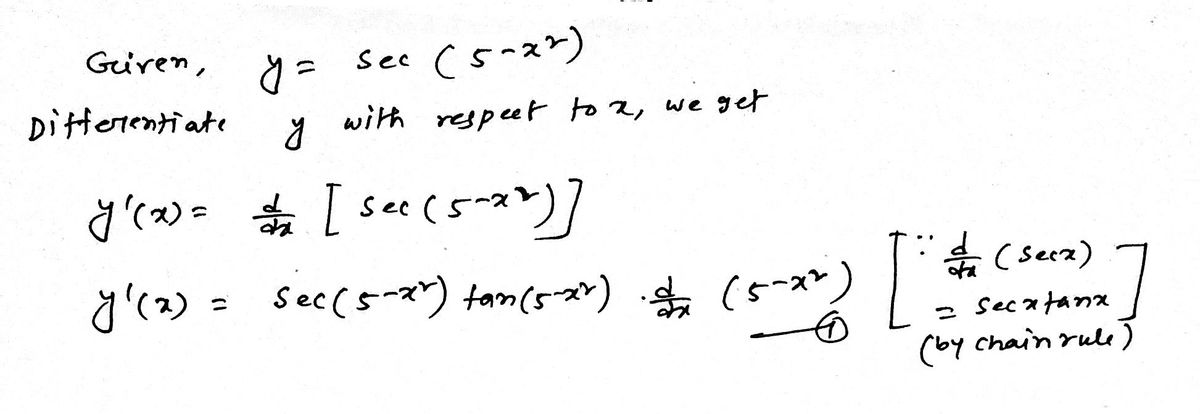 Given, y = sec (5-x²)
Differentiate y with respect to x, we get
y'(x) = d/dx [sec(5-x²)]
y'(x) = sec(5-x²) tan(5-x²) · d/dx (5-x²) —① [∵ d/dx (secx)
= secxtanx]
(by chain rule)